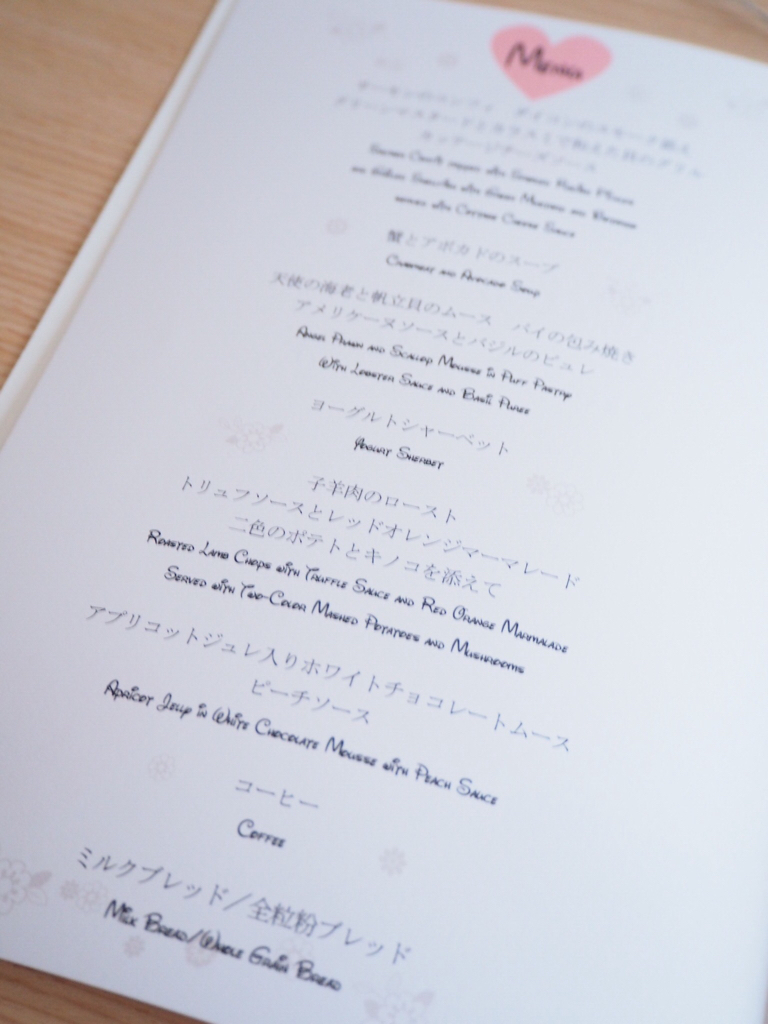 Menu
サーモンのコンフィ ダイコンのスモーク添え
グリーンマスタードと
コッテージチーズソース
Salmon Confit
with Green Mustard and
served with Cottage Cheese Sauce
蟹とアボカドのスープ
Crabmeat and Avocado Soup
天使の海老と帆立貝のムース パイの包み焼き
アメリケーヌソースとバジルのピュレ
Angel Prawn and Scallop Mousse in Puff Pastry
With Lobster Sauce and Basil Puree
ヨーグルトシャーベット
Yogurt Sherbet
子羊肉のロースト
トリュフソースとレッドオレンジマーマレード
二色のポテトとキノコを添えて
Roasted Lamb Chops with Truffle Sauce and Red Orange Marmalade
Served with Two-Color Mashed Potatoes and Mushrooms
アプリコットジュレ入りホワイトチョコレートムース
ピーチソース
Apricot Jelly in White Chocolate Mousse with Peach Sauce
コーヒー
Coffee
ミルクブレッド/全粒粉ブレッド
Milk Bread/Whole Grain Bread